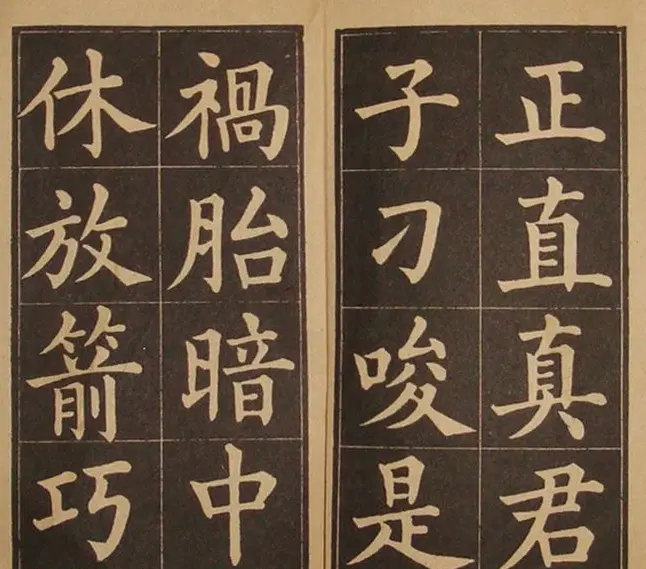 正直真君
子刁唆是
禍胎暗中
休放箭巧